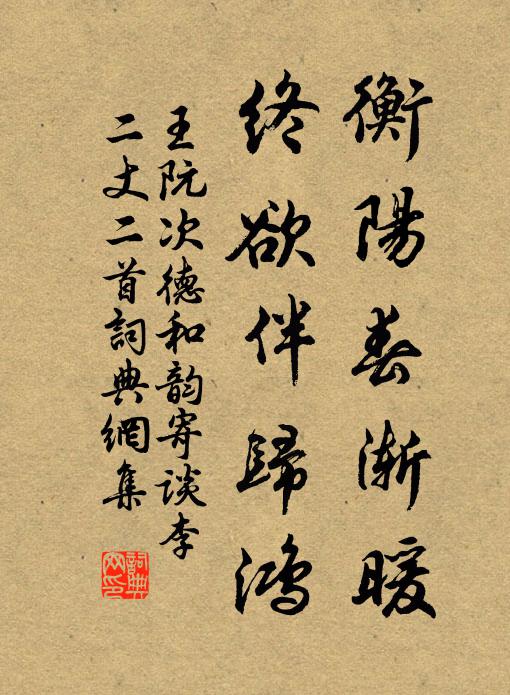 衡陽春漸暖
終欲伴歸鴻
王阮次德和韵寄談李
二丈二首詞典網集
詞典網印